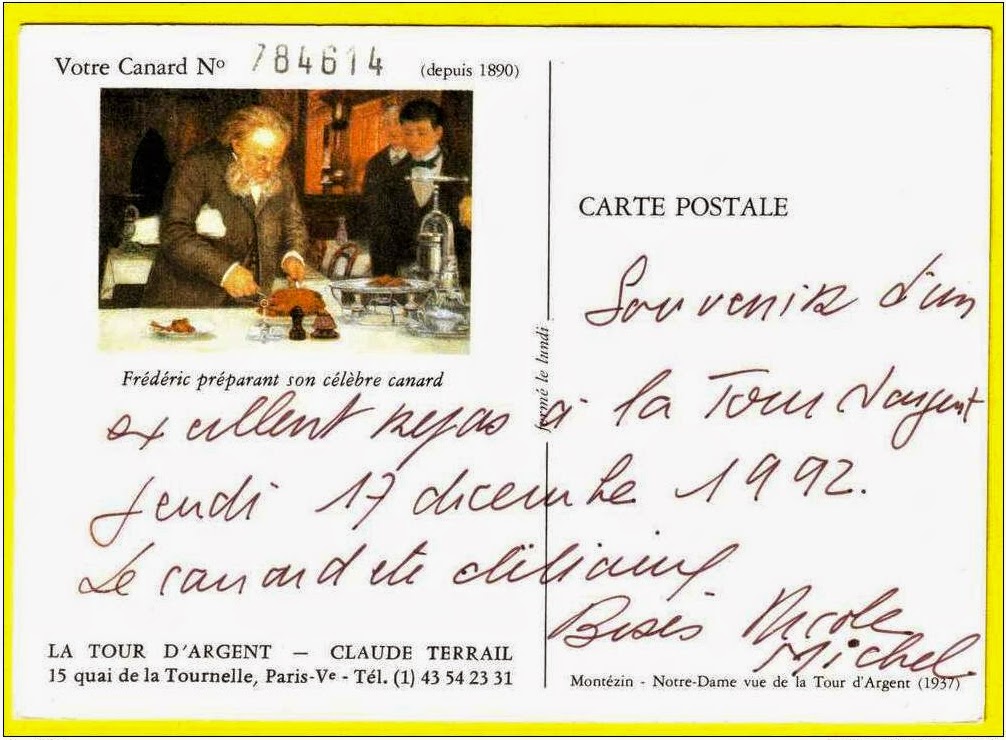 Votre Canard Nº 784614 (depuis 1890)
Frédéric préparant son célèbre canard
CARTE POSTALE
fermé le lundi
Souvenir d'un
excellent repas à la Tour d'argent
jeudi 17 décembre 1992.
Le canard été délicieux
Bises Nicole
Michel
LA TOUR D'ARGENT – CLAUDE TERRAIL
15 quai de la Tournelle, Paris-Ve - Tél. (1) 43 54 23 31
Montézin - Notre-Dame vue de la Tour d'Argent (1937)